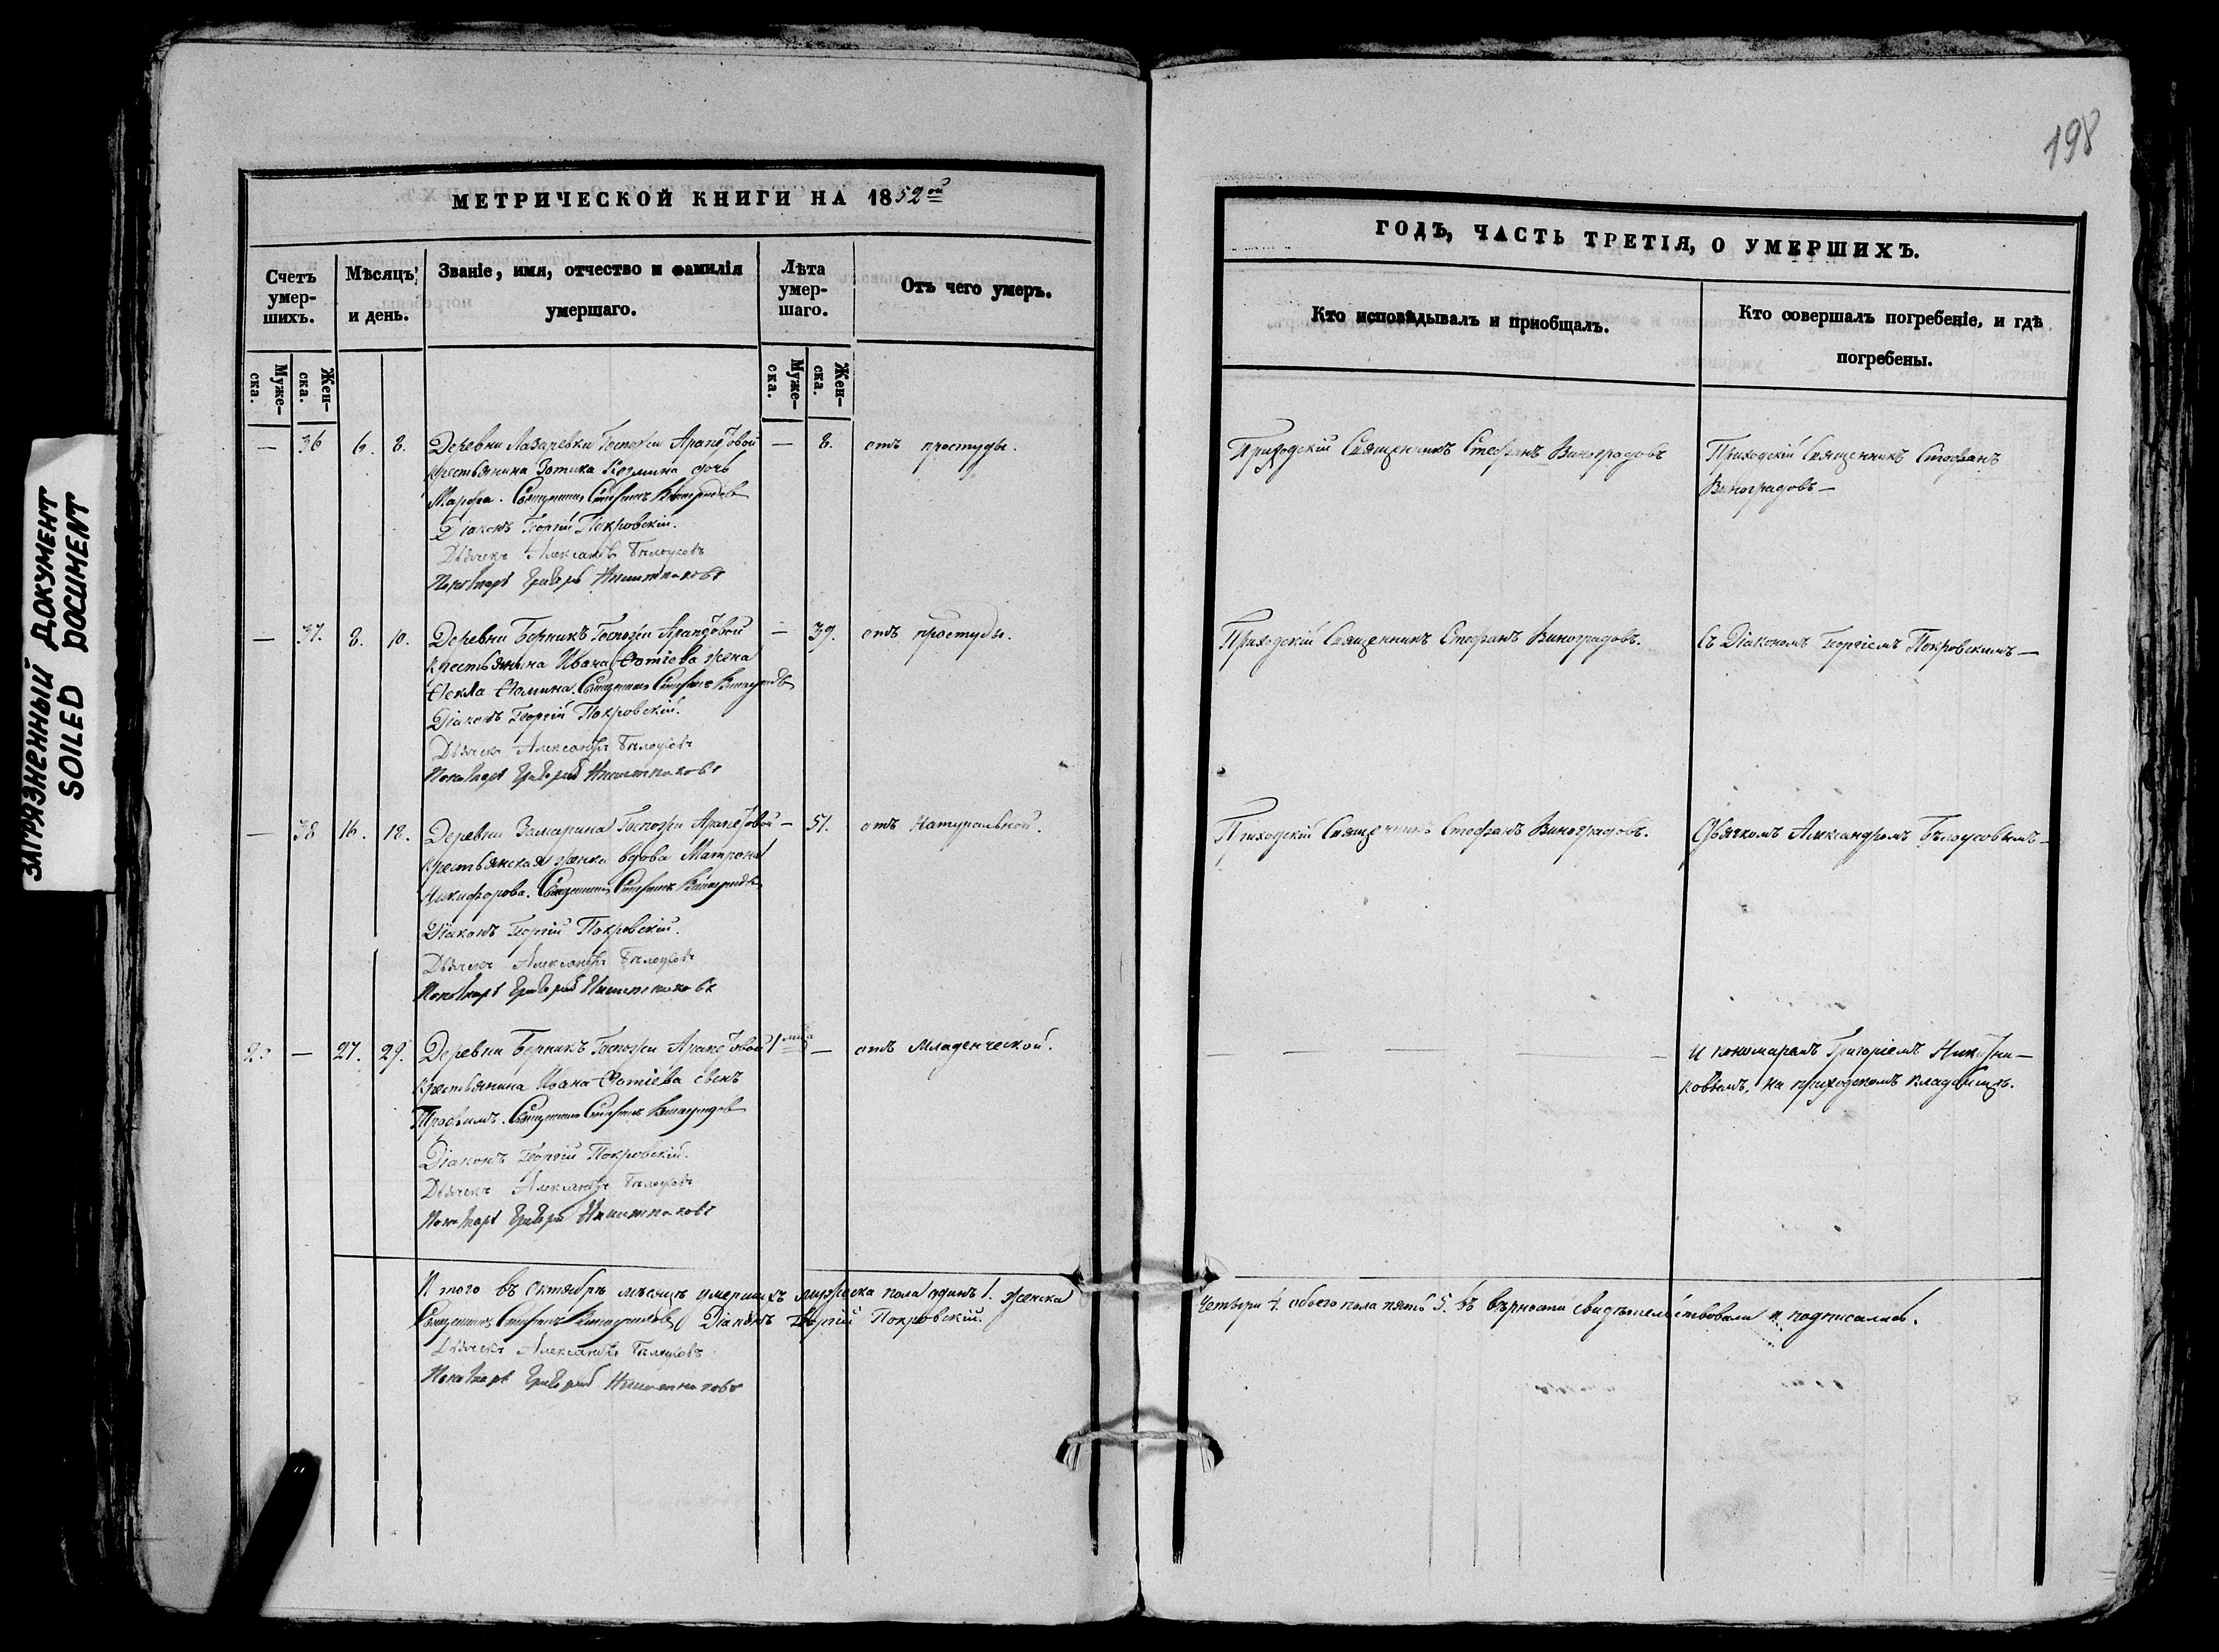 ЗАГРЯЗНЕННЫЙ ДОКУМЕНТ
SOILED DOCUMENT
МЕТРИЧЕСКОЙ КНИГИ НА 1852ой
Счетъ умер-шихъ.
Мѣсяцъ и день.
Званіе, имя, отчество и фамилія умершаго.
Лѣта умер-шаго.
Отъ чего умеръ.
Муже-ска.
Жен-ска.
Муже-ска.
Жен-ска.
— 36 6. 8. Деревни Лазаревки Госпожи Араповой — 8. отъ простуды.
крестьянина Зотика Козмина дочь
Марфа. Священникъ Стефанъ Виноградовъ
Діаконъ Георгій Покровскій.
Дьячекъ Александръ Бѣлоусовъ
Пономарь Григорій
— 37. 8. 10. Деревни Госпожи Араповой — 39. отъ простуды.
крестьянина Ивана Фотіева жена
Ѳекла Ѳомина. Священникъ Стефанъ Виноградовъ
Діаконъ Георгій Покровскій.
Дьячекъ Александръ Бѣлоусовъ
Пономарь Григорій
— 38 16. 18. Деревни Госпожи Араповой — 51. отъ Натуральной.
крестьянская женка вдова Матрона
Никифорова. Священникъ Стефанъ Виноградовъ
Діаконъ Георгій Покровскій.
Дьячекъ Александръ Бѣлоусовъ
Пономарь Григорій
— 27. 29. Деревни Госпожи Араповой 1 — отъ Младенческой.
крестьянина Ивана Фотіева сынъ
Трофимъ. Священникъ Стефанъ Виноградовъ
Діаконъ Георгій Покровскій.
Дьячекъ Александръ Бѣлоусовъ
Пономарь Григорій
Итого въ Октябрѣ мѣсяцѣ умершихъ мужеска пола одинъ 1. женска
Священникъ Стефанъ Виноградовъ Діаконъ Георгій Покровскій.
Дьячекъ Александръ Бѣлоусовъ
Пономарь Григорій
198
ГОДЪ, ЧАСТЬ ТРЕТІЯ, О УМЕРШИХЪ.
Кто исповѣдывалъ и пріобщалъ.
Кто совершалъ погребеніе, и гдѣ
погребены.
Приходскій Священникъ Стефанъ Виноградовъ
Приходскій Священникъ Стефанъ
Виноградовъ —
Приходскій Священникъ Стефанъ Виноградовъ.
Съ Діакономъ Георгіемъ Покровскимъ —
Приходскій Священникъ Стефанъ Виноградовъ.
Дьячкомъ Александромъ Бѣлоусовымъ —
— — — —
и пономаремъ Григоріемъ
на приходскомъ кладбищѣ.
четыри 4. обоего пола пять 5. въ вѣрности свидѣтельствовали и подписались.